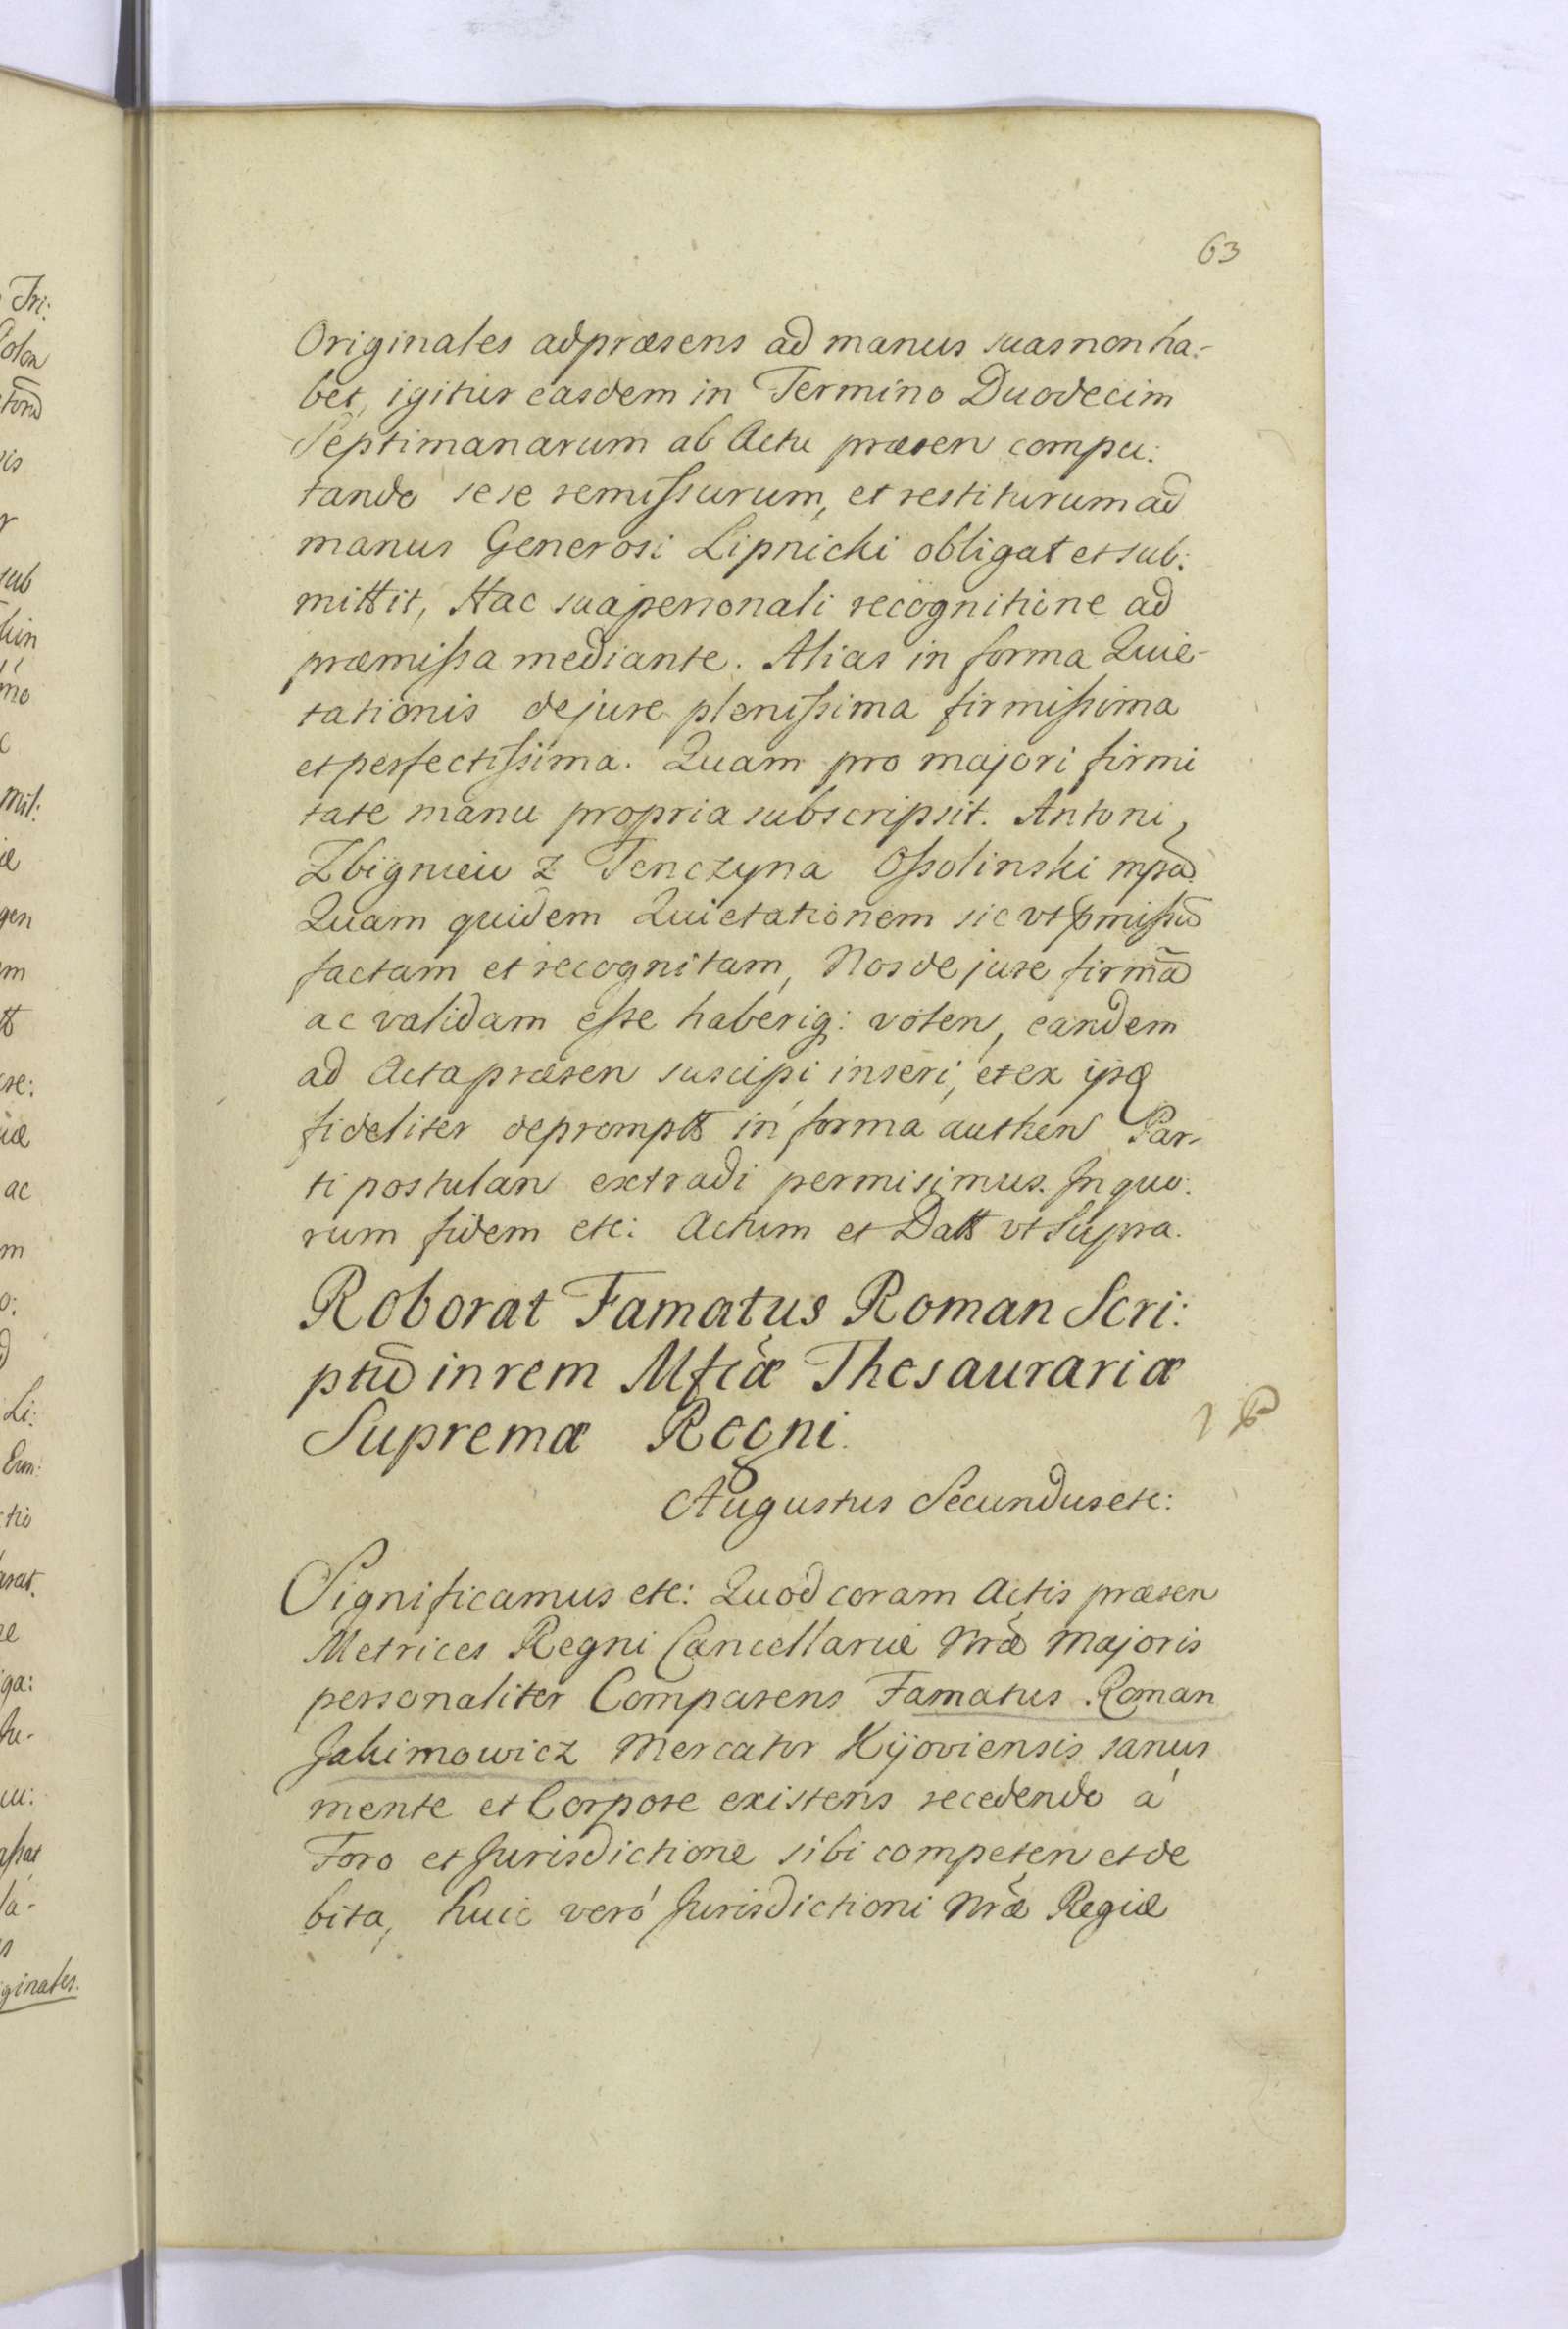 63
Originales adpræsens ad manus suas non ha-
bet, igitur easdem in Termino Duodecim
Septimanarum ab Actu præsen compu:
tando sese remissurum, et restiturum ad
manus Generosi Lipnicki obligat et sub:
mittit, Hac sua personali recognitione ad
præmissa mediante. Alias in forma Quie-
tationis de jure plenissima firmissima
et perfectissima. Quam pro majori firmi
tate manu propria subscripsit. Antoni,
Zbigniew z Tenczyna Ossolinski mpa
Quam quidem Quietationem sic vt pmissũ
factam et recognitam, Nos de jure firmã
ac validam esse haberiq: volen, eandem
ad Acta præsen suscipi, inseri, et ex ijsq
fideliter deprompt in forma authen Par-
ti postulan extradi permisimus. In quo:
rum fidem etc: Actum et Datt vt Supra.
Roborat Famatus Roman Scri:
ptũ in rem Mfciæ Thesaurariæ
Supremæ Regni.
Augustus Secundus etc:
Significamus etc: Quod coram Actis præsen
Metrices Regni Cancellariæ Nræ Majoris
personaliter Comparens Famatus Roman
Jakimowicz Mercator Kijoviensis sanus
mente et Corpore existens recedendo á
Foro et Jurisdictione sibi competen et de
bita, huic veró Jurisdictioni Nræ Regiæ